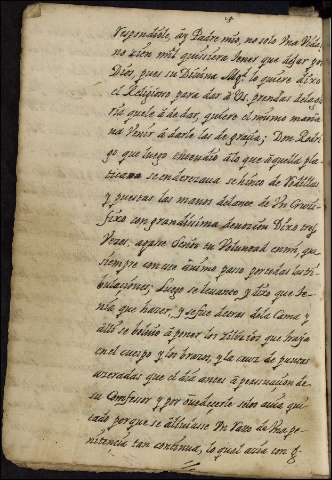 Respondiole, ay Padre mio, no solo Vna Vida,
no cien mil quisiera tener que dejar por
Dios, pues su Diuina Magd. lo quiere dixo
el Religioso para dar a Vs. prendas de la glo
ria que le à de dar, quiere el mismo maña
na Venir à darle las de gracia; Don Rodri
go que luego entendio a lo que aquella pla
tica se enderezaua se hinco de Rodillas
y puestas las manos delante de Vn Cruci
fixo con grandissima deuocion Dixo tres
Vezes: agase Señor tu Voluntad en mi, que
siempre con ese animo paso por todas las tri
bulaciones; luego se leuanto, y dixo que te
nia que hacer, y se fue detras de la Cama y
alli se boluio à poner los silicios que traya
en el cuerpo y los brazos, y la cruz de puntas
azeradas que el dia antes à persuacion de
su Comfesor y por obedecerle se los auia qui
tado porque se aliuiasse Vn rato de Vna pe
nitencia tan continua, lo qual auia con